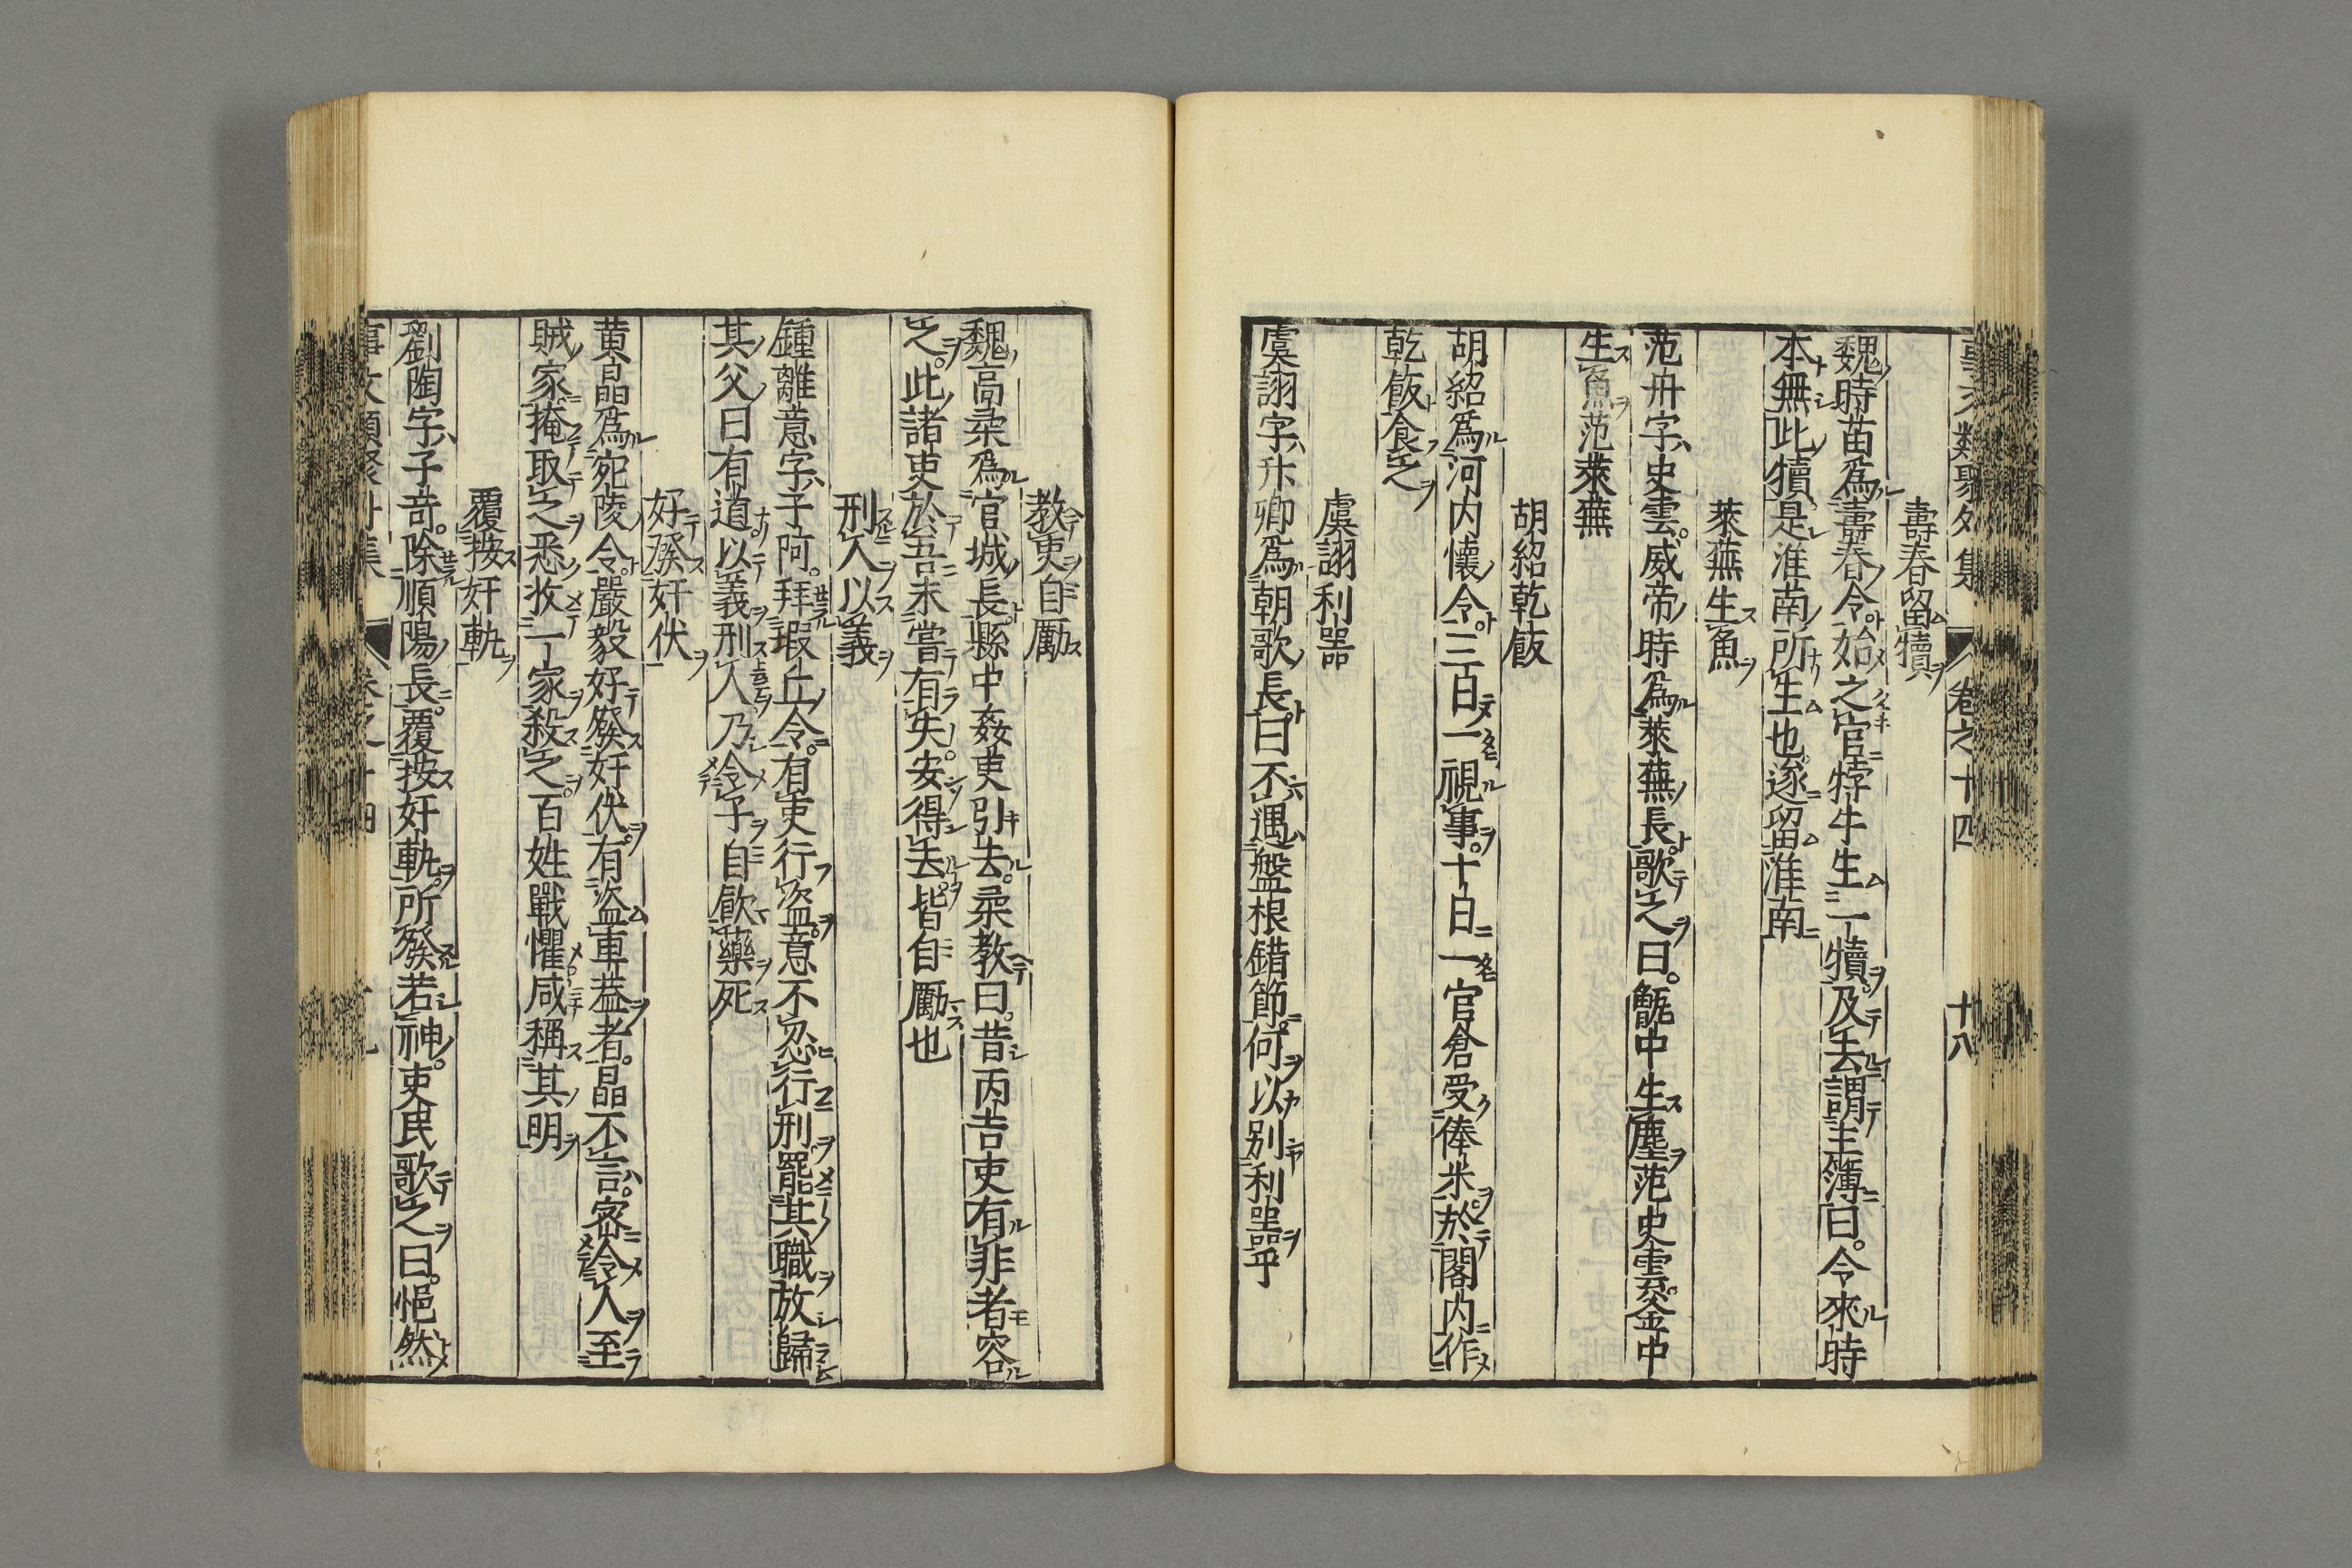 事文類聚外集 卷之十四 十八
壽春留犢
魏時苗爲壽春令始之官牸牛生一犢及去謂主簿曰令來時
本無此犢是淮南所生也遂留淮南
萊蕪生魚
范冉字史雲威帝時爲萊蕪長歌之曰甑中生塵范史雲釜中
生魚范萊蕪
胡紹乾飯
胡紹爲河内懷令三日一視事十日一官倉受俸米於閣内作
乾飯食之
虞詡利器
虞詡字升卿爲朝歌長曰不遇盤根錯節何以别利器乎
教吏自勵
魏高柔爲官城長縣中姦吏引去柔教曰昔丙吉吏有非者容
之此諸吏於吾未嘗有失安得去皆自勵也
刑人以義
鍾離意字子阿拜瑕丘令有吏行盜意不忍行刑罷其職放歸
其父曰有道以義刑人乃令子自飲藥死
好發奸伏
黄晶爲宛陵令嚴毅好發奸伏有盜車葢者晶不言密令人至
賊家掩取之悉收一家殺之百姓戰懼咸稱其明
覆按奸軌
劉陶字子奇除順陽長覆按奸軌所發若神吏民歌之曰悒然
事文類聚外集 卷之十四